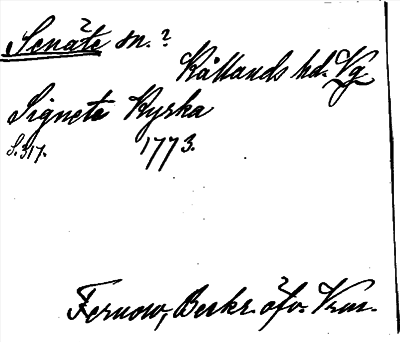 Senåte sn.?
Kållands hd. Vg
Signete Kyrka
S.317. 1773.
Fernow, Beskr. öfv. Vrml.